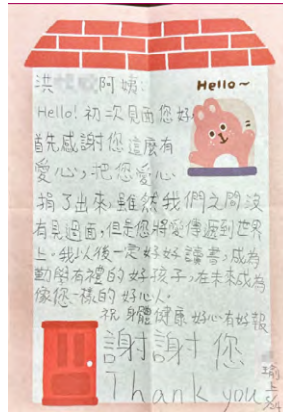 洪 阿姨:
Hello~
Hello! 初次見面您好
首先感謝您這麼有
愛心,把您愛心
捐了出來,雖然我們之間沒
有見過面,但是您將愛傳遞到世界
上。我以後一定好好讀書,成為
勤學有禮的好孩子,在未來成為
像您一樣的好心人。
祝 身體健康 好心有好報
謝謝您
Thank you
瑜上